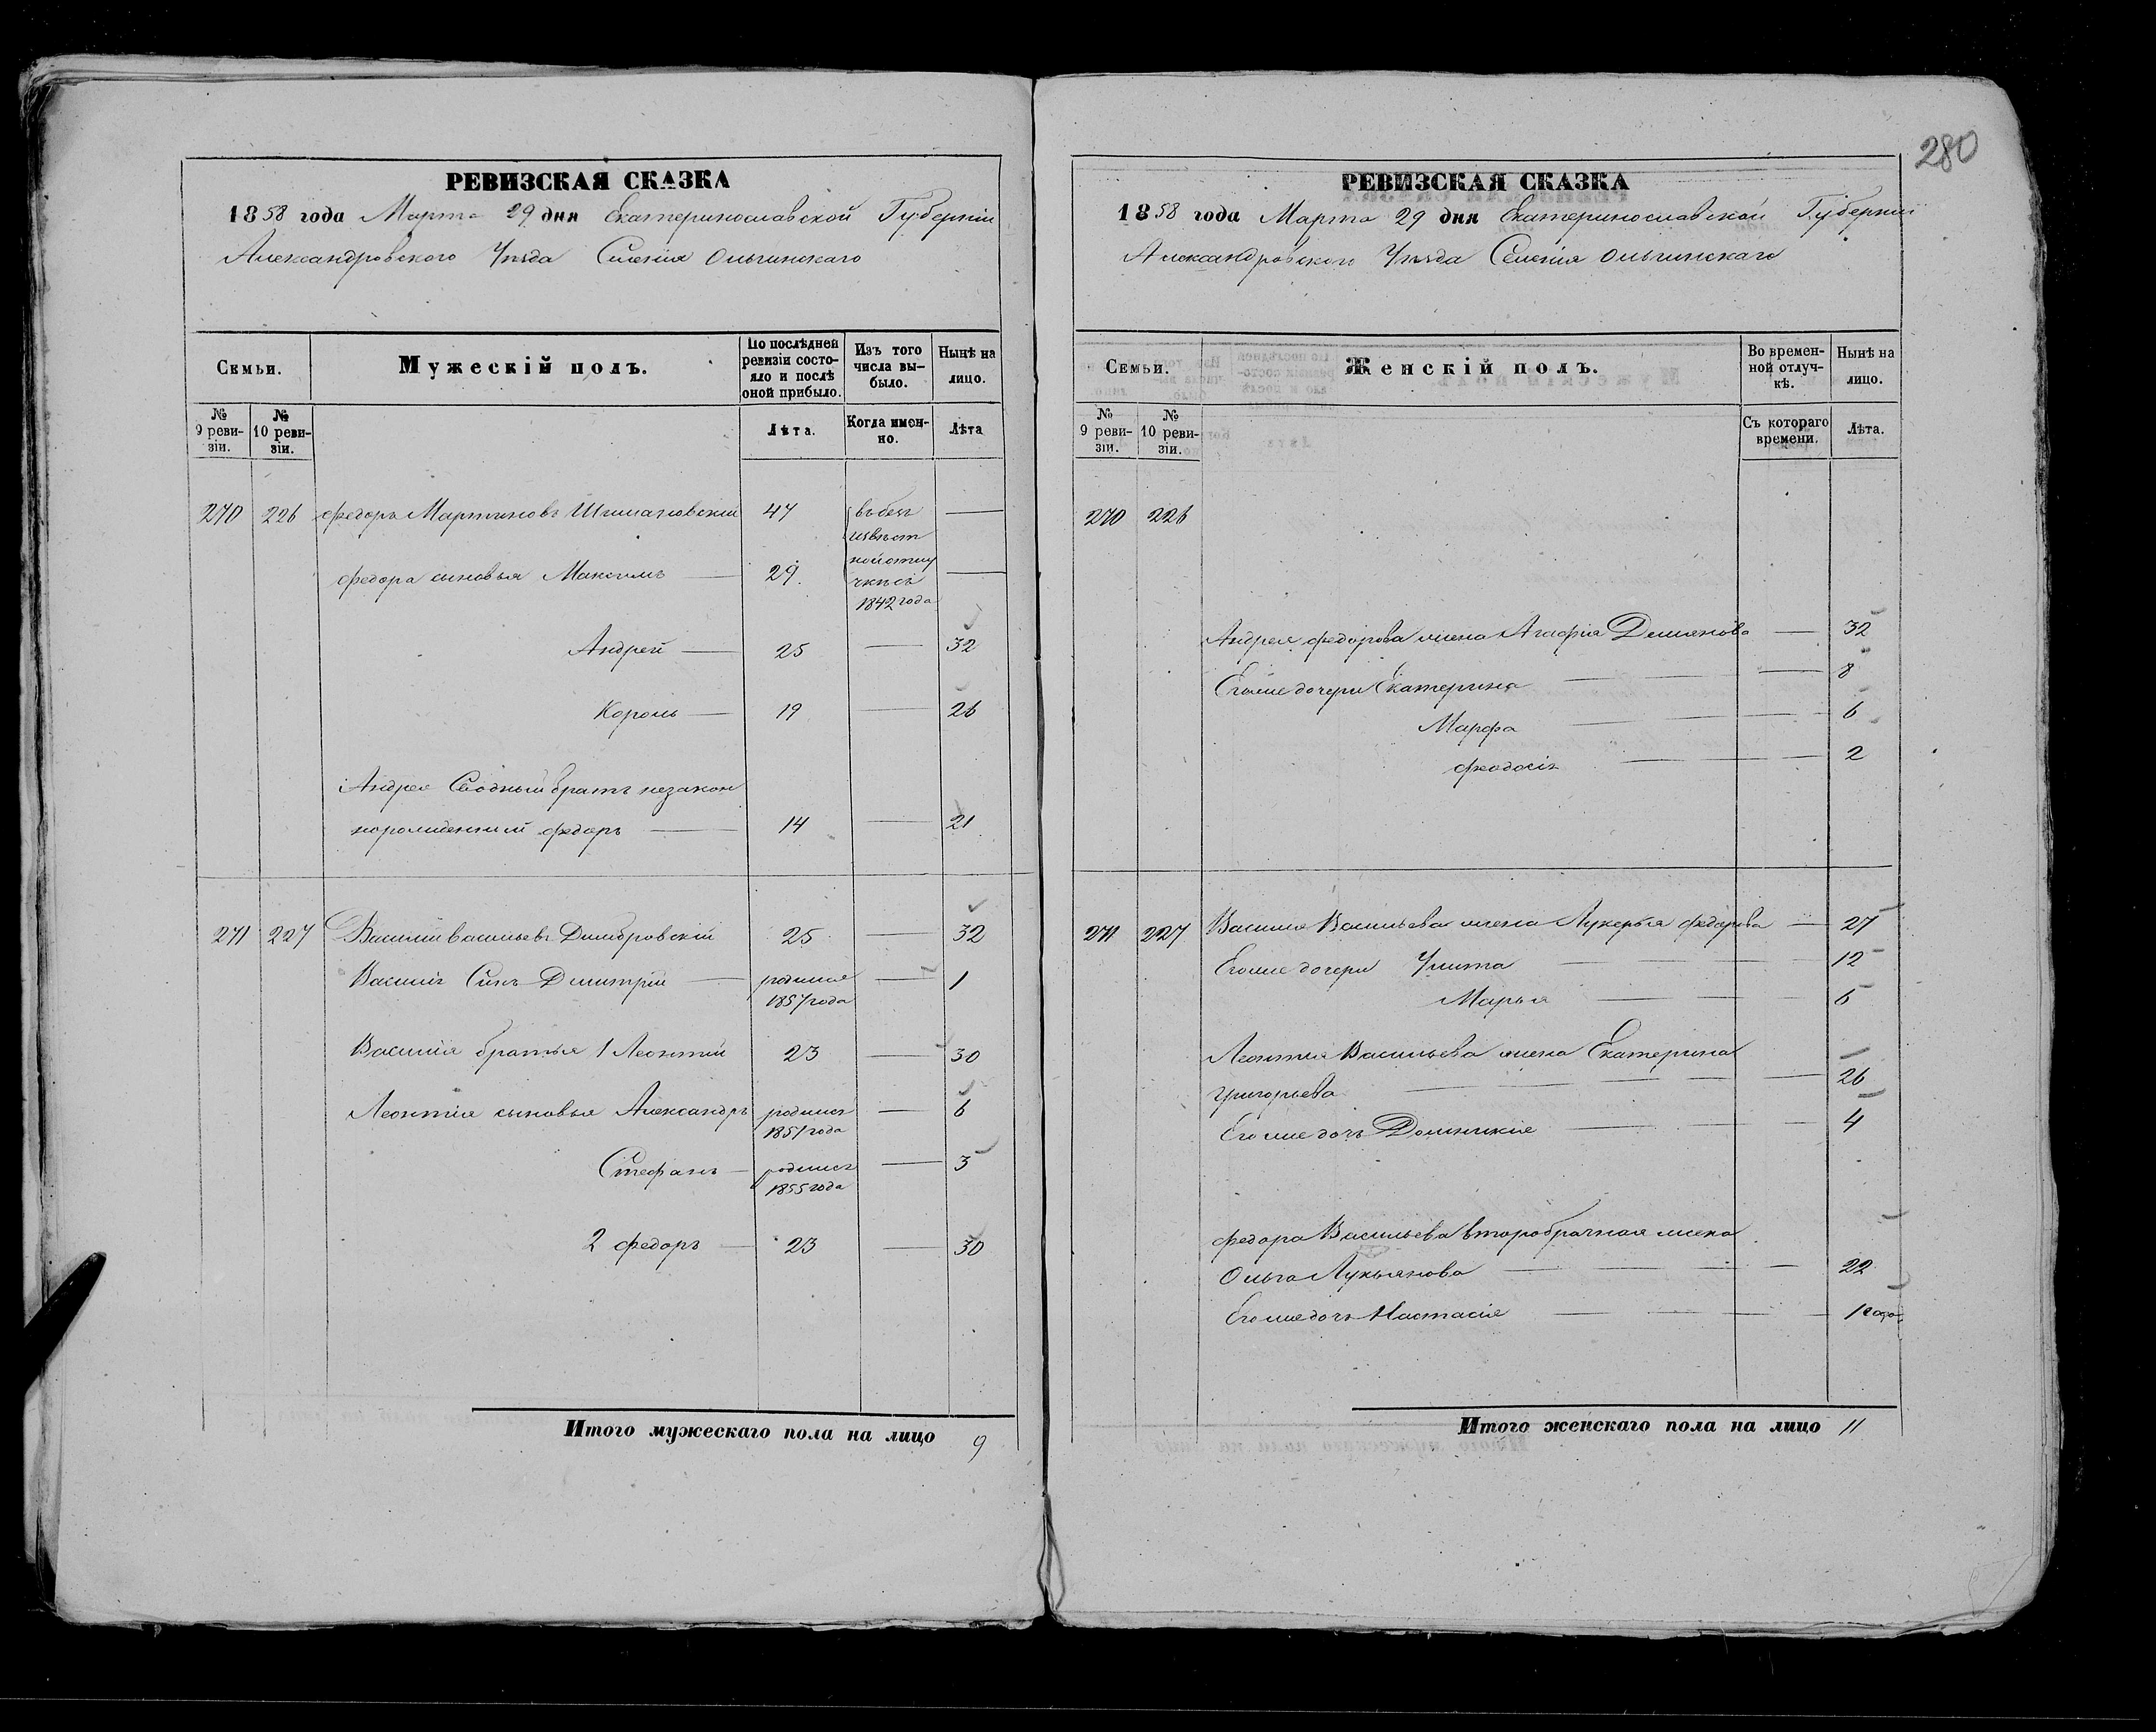 280
РЕВИЗСКАЯ СКАЗКА
1858 года Марта 29 дня Екатеринославской Губерніи
Александровского Уѣзда Селенія Ольгинскаго
Семьи.
Мужескій полъ.
По послѣдней ревизіи состо-
яло и послѣ
оной прибыло.
Изъ того
числа вы-
было.
Нынѣ на
лицо.
№
9 реви-
зіи.
№
10 реви-
зіи.
Лѣта.
Когда имен-
но.
Лѣта
270 226 Федоръ Мартиновъ 47 въ безъ
извѣст
Федора сыновья Максимъ 29 ной отлу
чкѣ съ
1842 года
Андрей 25 32
Король 19 26
Андрея Сводный братъ незакон
норожденный Федоръ 14 21
271 227 Василий Васильевъ Димбровскій 25 32
Василія Сынъ Димитрій родился 1
1857 года
Василія братья 1 Леонтій 23 30
Леонтія сыновья Александръ родился 6
1851 года
Стефанъ родился 3
1855 года
2 Федоръ 23 30
Итого мужескаго пола на лицо 9
РЕВИЗСКАЯ СКАЗКА
1858 года Марта 29 дня Екатеринославской Губерніи
Александровского Уѣзда Селенія Ольгинскаго
Семьи.
Женскій полъ.
Во времен-
ной отлуч-
кѣ.
Нынѣ на
лицо.
№
9 реви-
зіи.
№
10 реви-
зіи.
Съ котораго
времени.
Лѣта.
270 226
Андрея Федорова жена Агафія Демянова 32
Егоже дочери Екатерина 8
Марфа 6
Феодосія 2
271 227 Василия Васильева жена Лукерья Федорова 27
Егоже дочери Улита 12
Марья 6
Леонтия Васильева жена Екатерина
Григорьева 26
Егоже дочь Домникія 4
Федора Васильева второбрачная жена
Ольга Лукьянова 22
Егоже дочь Настасія 1 года
Итого женскаго пола на лицо 11